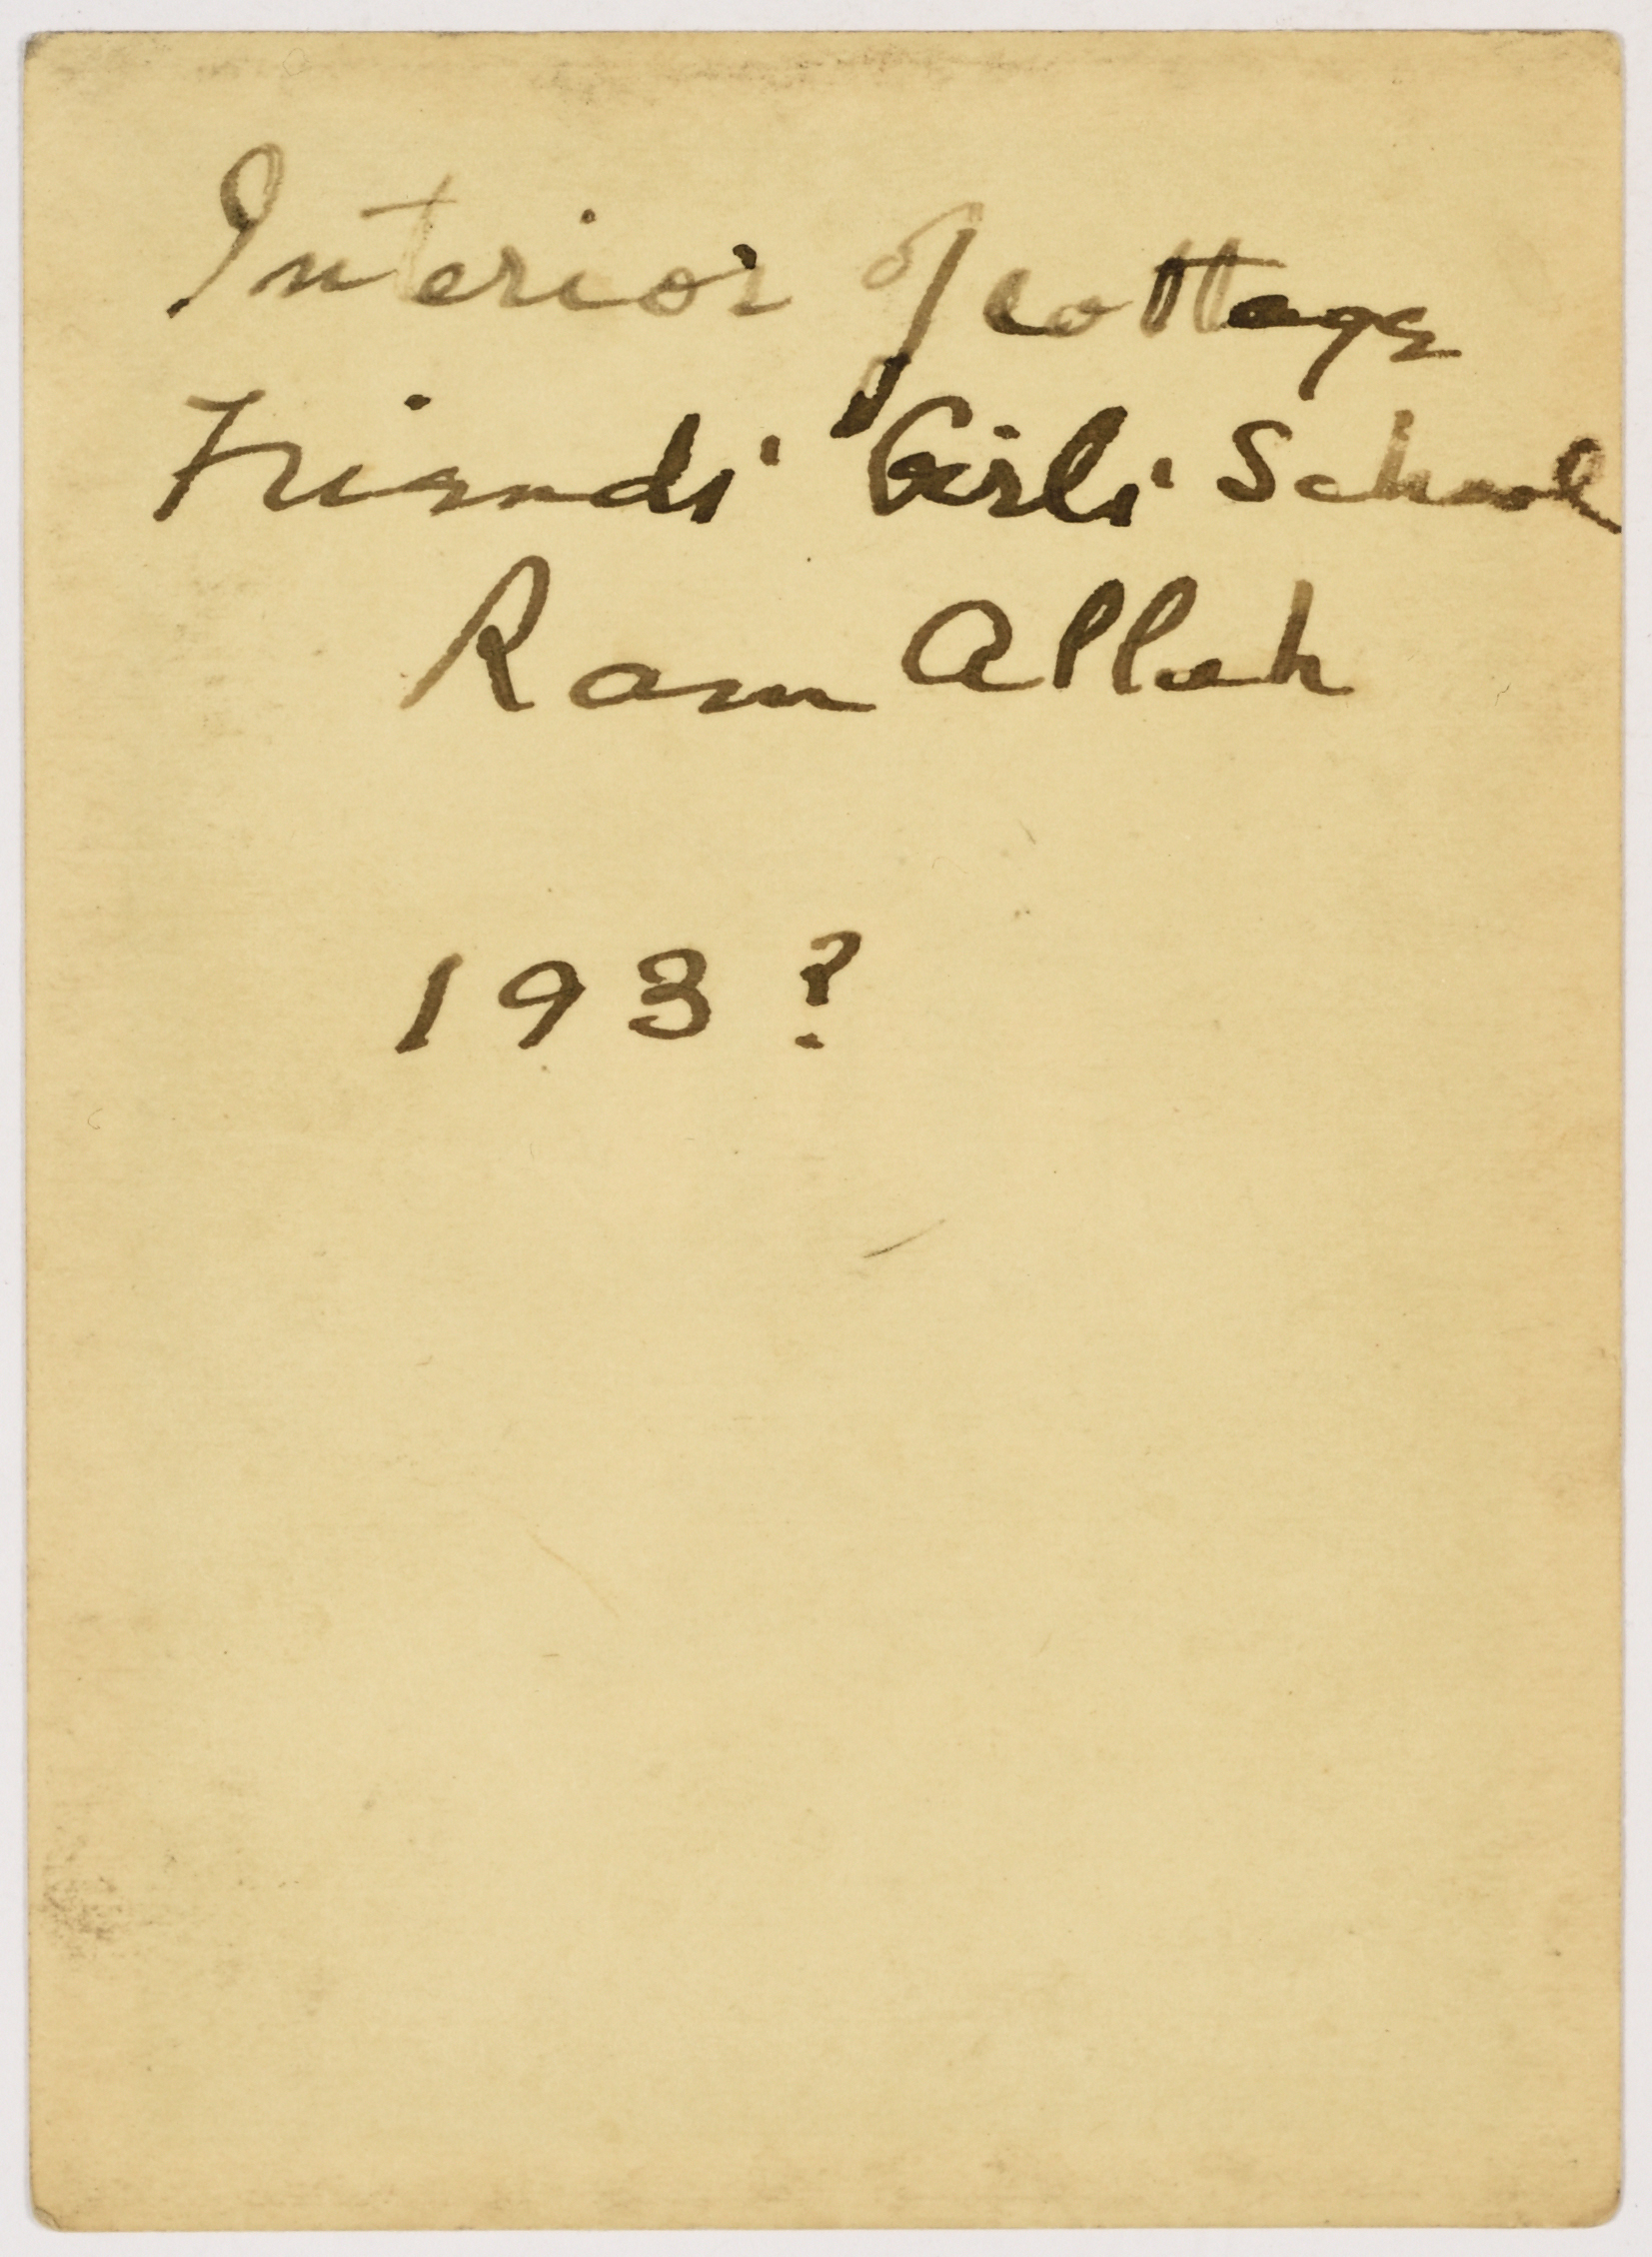 Interior of cottage
Friends' Girls' School
Ram Allah
193?